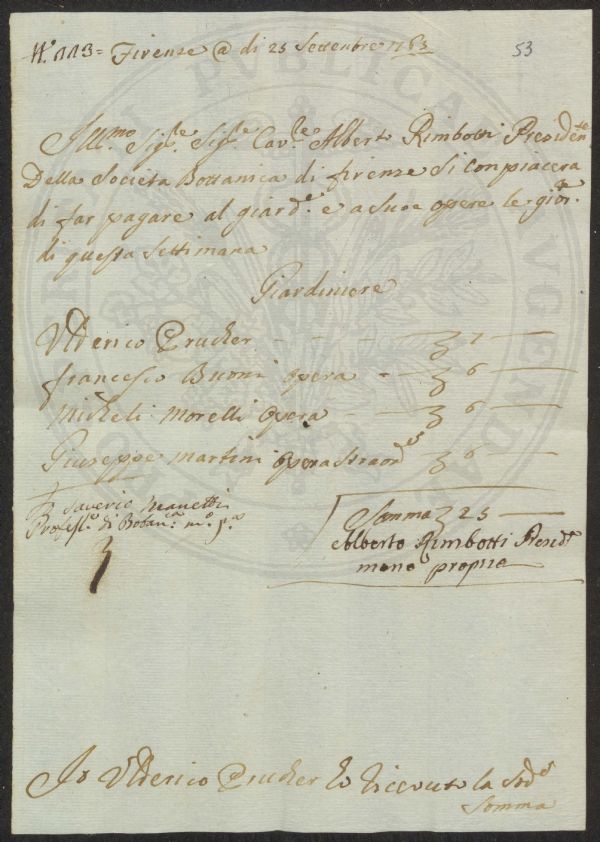 N.° 113 = Firenze @ di 25 Settembre 1763
53
Ill.mo Sig.re Sig.re Cav.re Alberto Rimbotti Presidente
Della Società Bottanica di firenze Si conpiacera
di far pagare al giard.e e a Sue opere le gior.te
di questa Settimana
Giardiniere
Ulderico Prucker - - - 7 —
francesco Buoni opera - 6 —
Micheli Morelli opera - 6 —
Giuseppe Martini opera Straord.a 6 —
Saverio Manetti
Profess.e di Botan.ca m.o p.a
Somma 25 —
Alberto Rimbotti Presid.te
mano propria
Io Ulderico Prucker ho riceuto la Sod.a
Somma
PUBLICAE